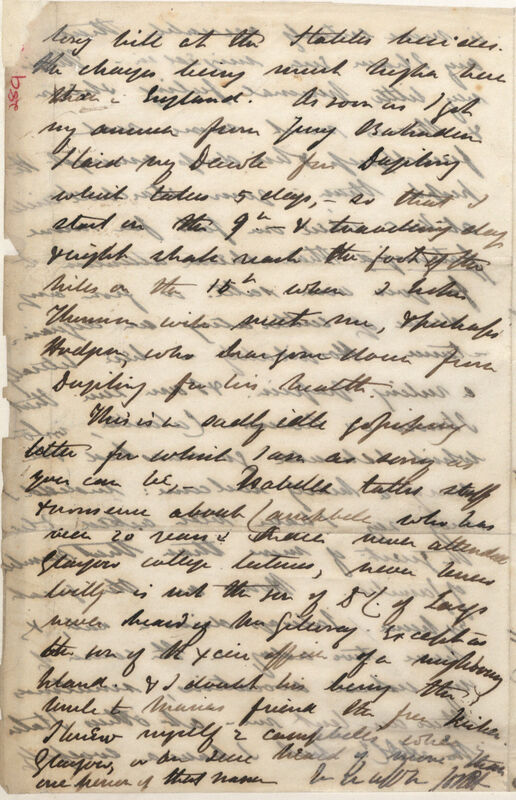 long bill at the Stables besides.
the charges being much higher here
than in England. As soon as I got
my answer from Jung Bahadur
I laid my Dawk for Dorjiling
which takes 5 days, – so that I
start on the 9th & travelling day
& night shall reach the foot of the
hills on the 15th when I hope
Thomson will meet me, & perhaps
Hodgson, who has gone down from
Dorjiling for his health.
This is a sadly idle gossiping
letter for which I am as sorry as
you can be, – Isabella talks stuff
& nonsense about Campbell who has
been 20 years & there never attended
Glasgow college lectures, never knew
Willy is not the son of Dr C. of Largs
never heard of McGilvray except as
the son of the excise officer of a neighbouring
Island. & I doubt his being the
uncle to Maria's friend the
I knew myself 2 Campbells when
Glasgow, or ever heard of more than
one person of that name